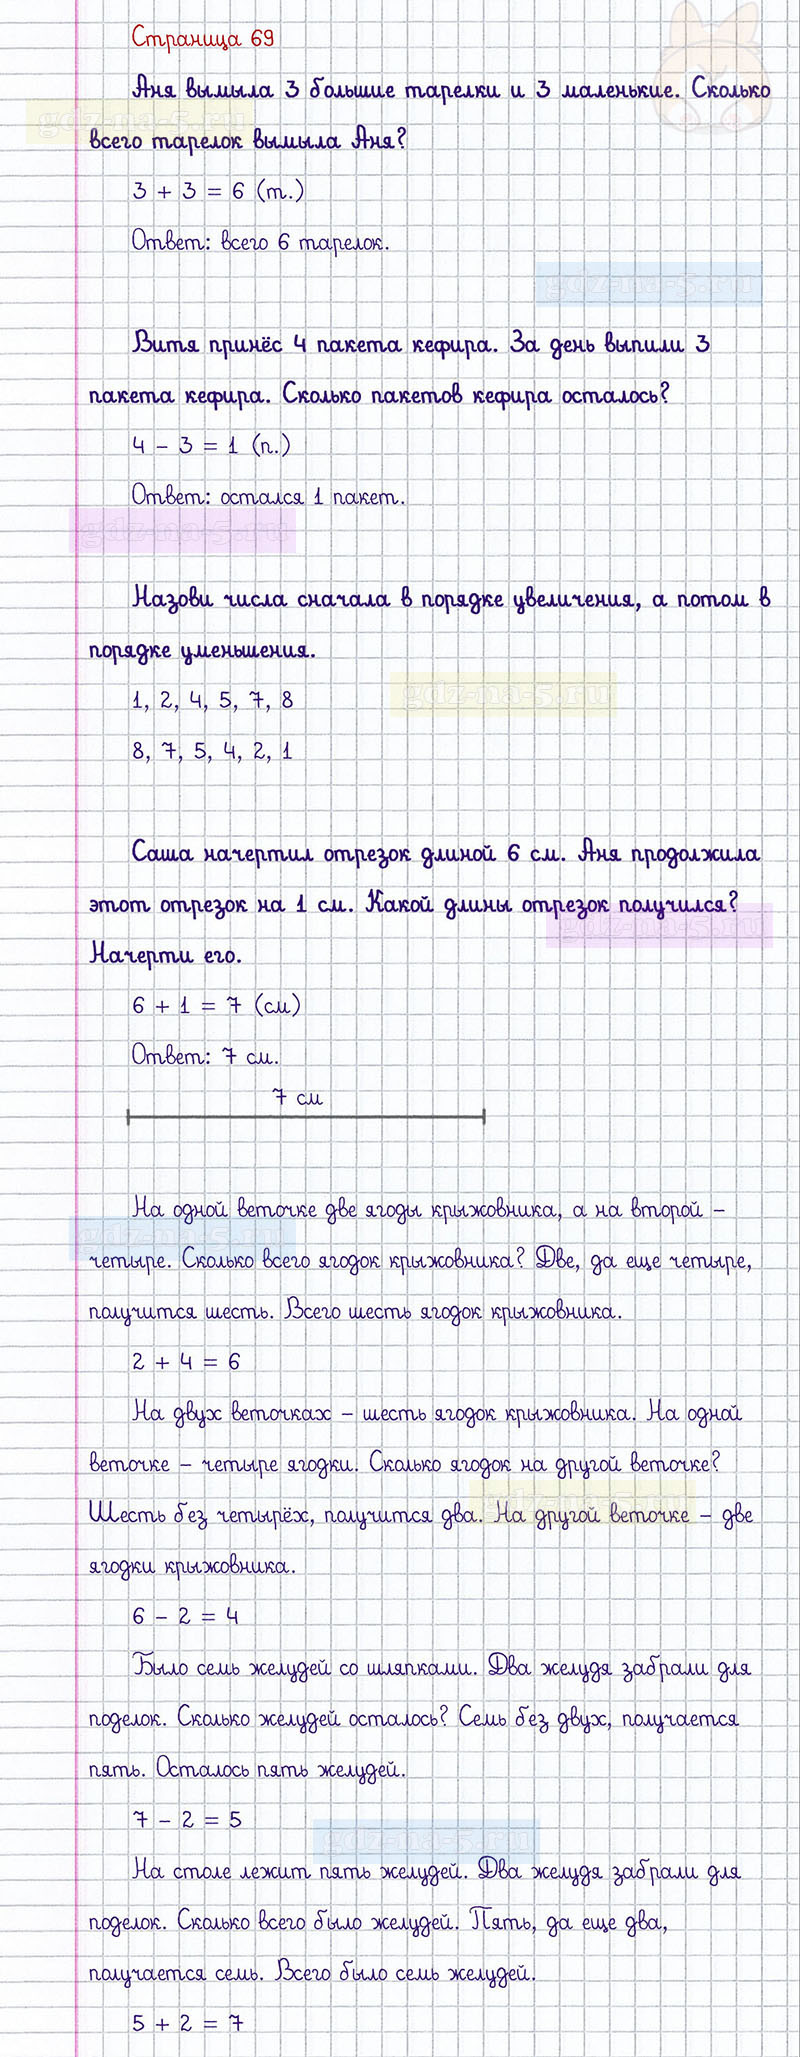 Страница 69
Аня вымыла 3 большие тарелки и 3 маленькие. Сколько
gdz-na-5.ru
всего тарелок вымыла Аня?
3 + 3 = 6 (т.)
Ответ: всего 6 тарелок.
gdz-na-5.ru
Витя принёс 4 пакета кефира. За день выпили 3
пакета кефира. Сколько пакетов кефира осталось?
4 - 3 = 1 (п.)
Ответ: остался 1 пакет.
gdz-na-5.ru
Назови числа сначала в порядке увеличения, а потом в
порядке уменьшения.
1, 2, 4, 5, 7, 8
gdz-na-5.ru
8, 7, 5, 4, 2, 1
Саша начертил отрезок длиной 6 см. Аня продолжила
этот отрезок на 1 см. Какой длины отрезок получился?
gdz-na-5.ru
Начерти его.
6 + 1 = 7 (см)
Ответ: 7 см.
7 см
На одной веточке две ягоды крыжовника, а на второй –
gdz-na-5.ru
четыре. Сколько всего ягодок крыжовника? Две, да еще четыре,
получится шесть. Всего шесть ягодок крыжовника.
2 + 4 = 6
На двух веточках – шесть ягодок крыжовника. На одной
веточке – четыре ягодки. Сколько ягодок на другой веточке?
gdz-na-5.ru
Шесть без четырёх, получится два. На другой веточке – две
ягодки крыжовника.
6 - 2 = 4
Было семь желудей со шляпками. Два желудя забрали для
поделок. Сколько желудей осталось? Семь без двух, получается
пять. Осталось пять желудей.
7 - 2 = 5
gdz-na-5.ru
На столе лежит пять желудей. Два желудя забрали для
поделок. Сколько всего было желудей. Пять, да еще два,
получается семь. Всего было семь желудей.
5 + 2 = 7